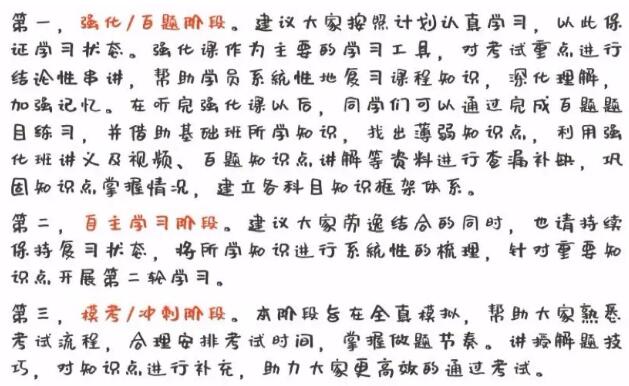 第一，强化/百题阶段。建议大家按照计划认真学习，以此保
证学习状态。强化课作为主要的学习工具，对考试重点进行
结论性串讲，帮助学员系统性地复习课程知识，深化理解，
加强记忆。在听完强化课以后，同学们可以通过完成百题题
目练习，并借助基础班所学知识，找出薄弱知识点，利用强
化班讲义及视频、百题知识点讲解等资料进行查漏补缺，巩
固知识点掌握情况，建立各科目知识框架体系。
第二，自主学习阶段。建议大家劳逸结合的同时，也请持续
保持复习状态，将所学知识进行系统性的梳理，针对重要知
识点开展第二轮学习。
第三，模考/冲刺阶段。本阶段旨在全真模拟，帮助大家熟悉
考试流程，合理安排考试时间，掌握做题节奏。讲授解题技
巧，对知识点进行补充，助力大家更高效的通过考试。